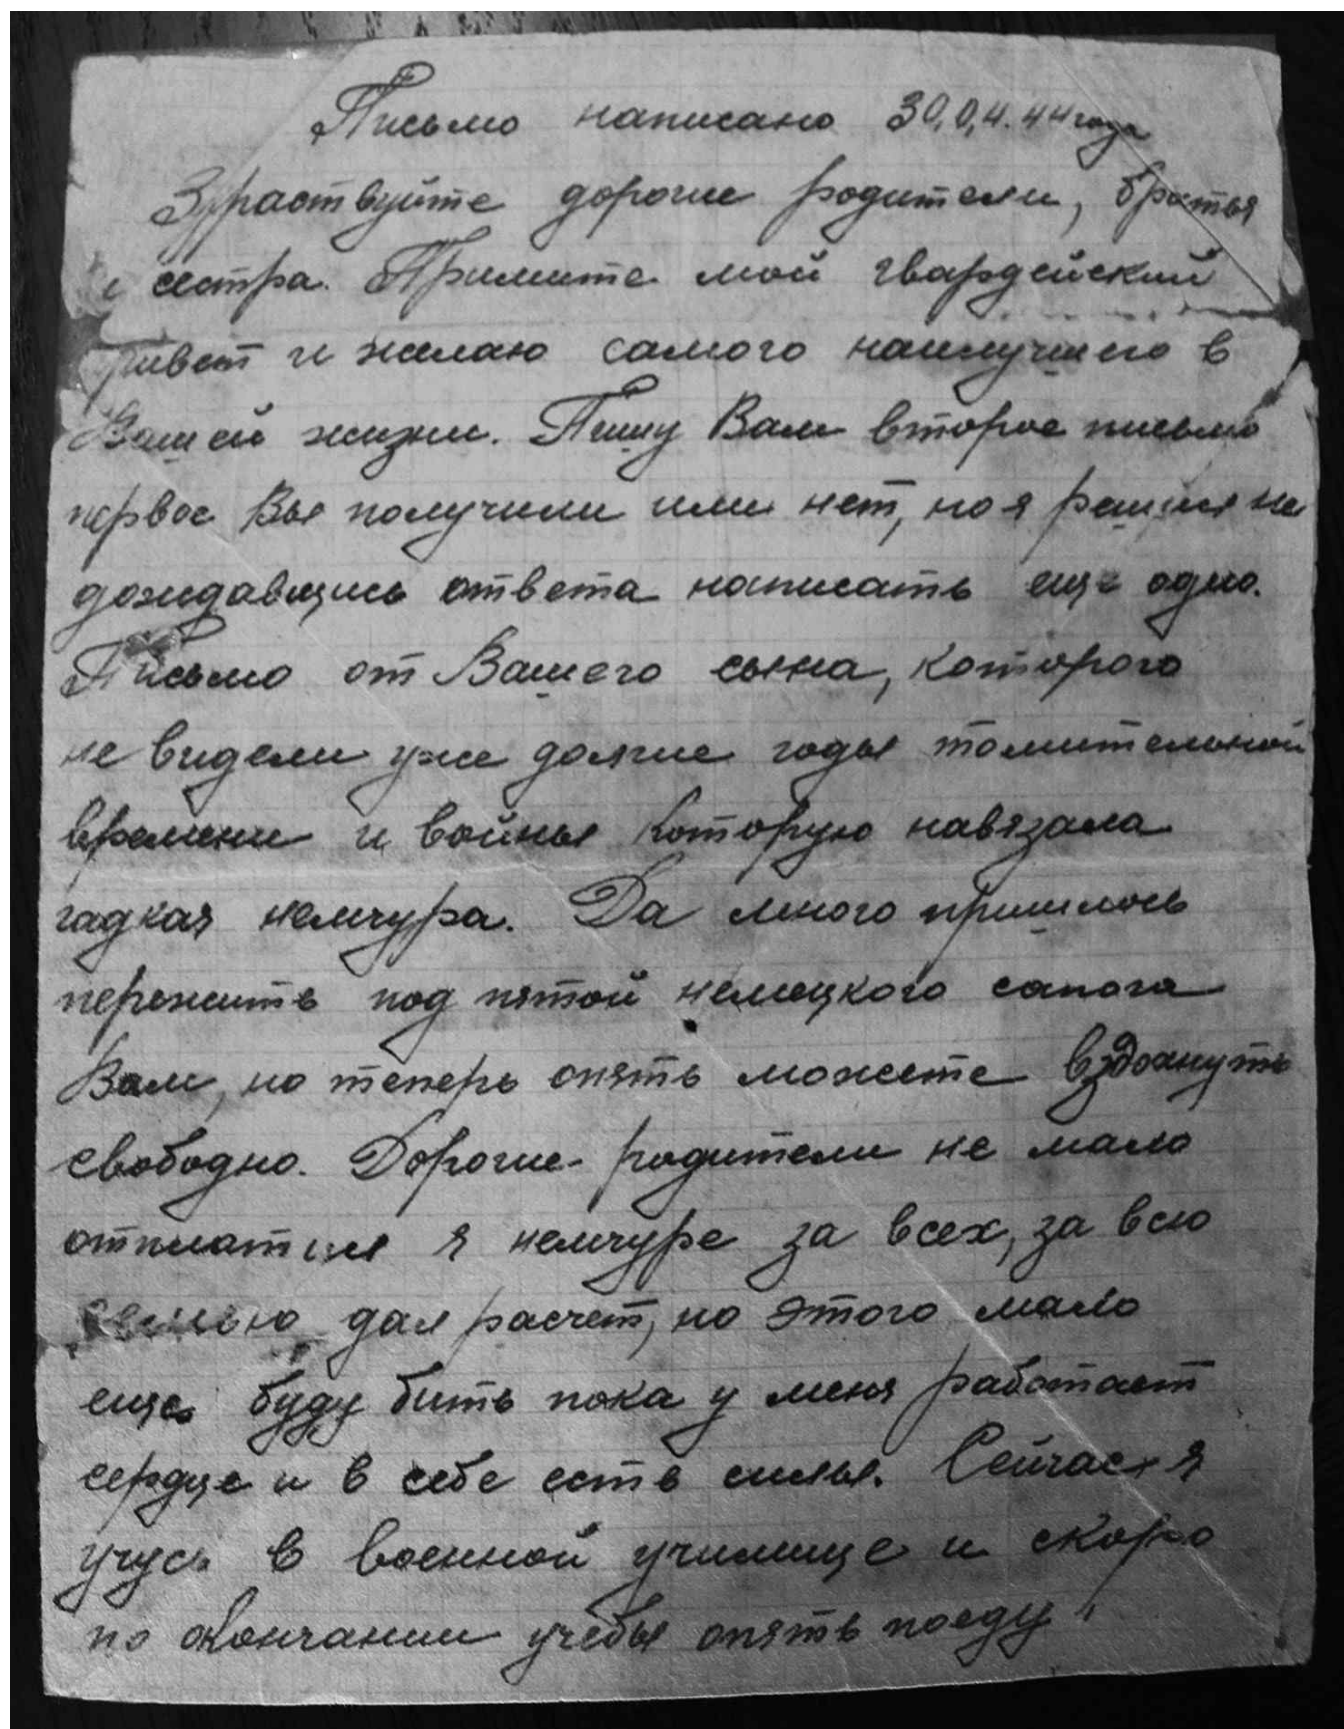 Письмо написано 30.0,4.44 года
Здраствуйте дорогие родители, братья
и сестра. Примите мой гвардейский
привет и желаю самого наилучшего в
Вашей жизни. Пишу Вам второе письмо
первое Вы получили или нет, но я решил не
дожидавшись ответа написать еще одно.
Письмо от Вашего сына, которого
не видели уже долгие годы томительной
времени и войны которую навязала
гадкая немчура. Да много пришлось
пережить под пятой немецкого сапога
Вам, но теперь опять можете вздохнуть
свободно. Дорогие родители не мало
отплатил я немчуре за всех, за всю
семью дал расчет, но этого мало
еще буду бить пока у меня работает
сердце и в себе есть силы. Сейчас я
учусь в военной училище и скоро
по окончании учебы опять поеду